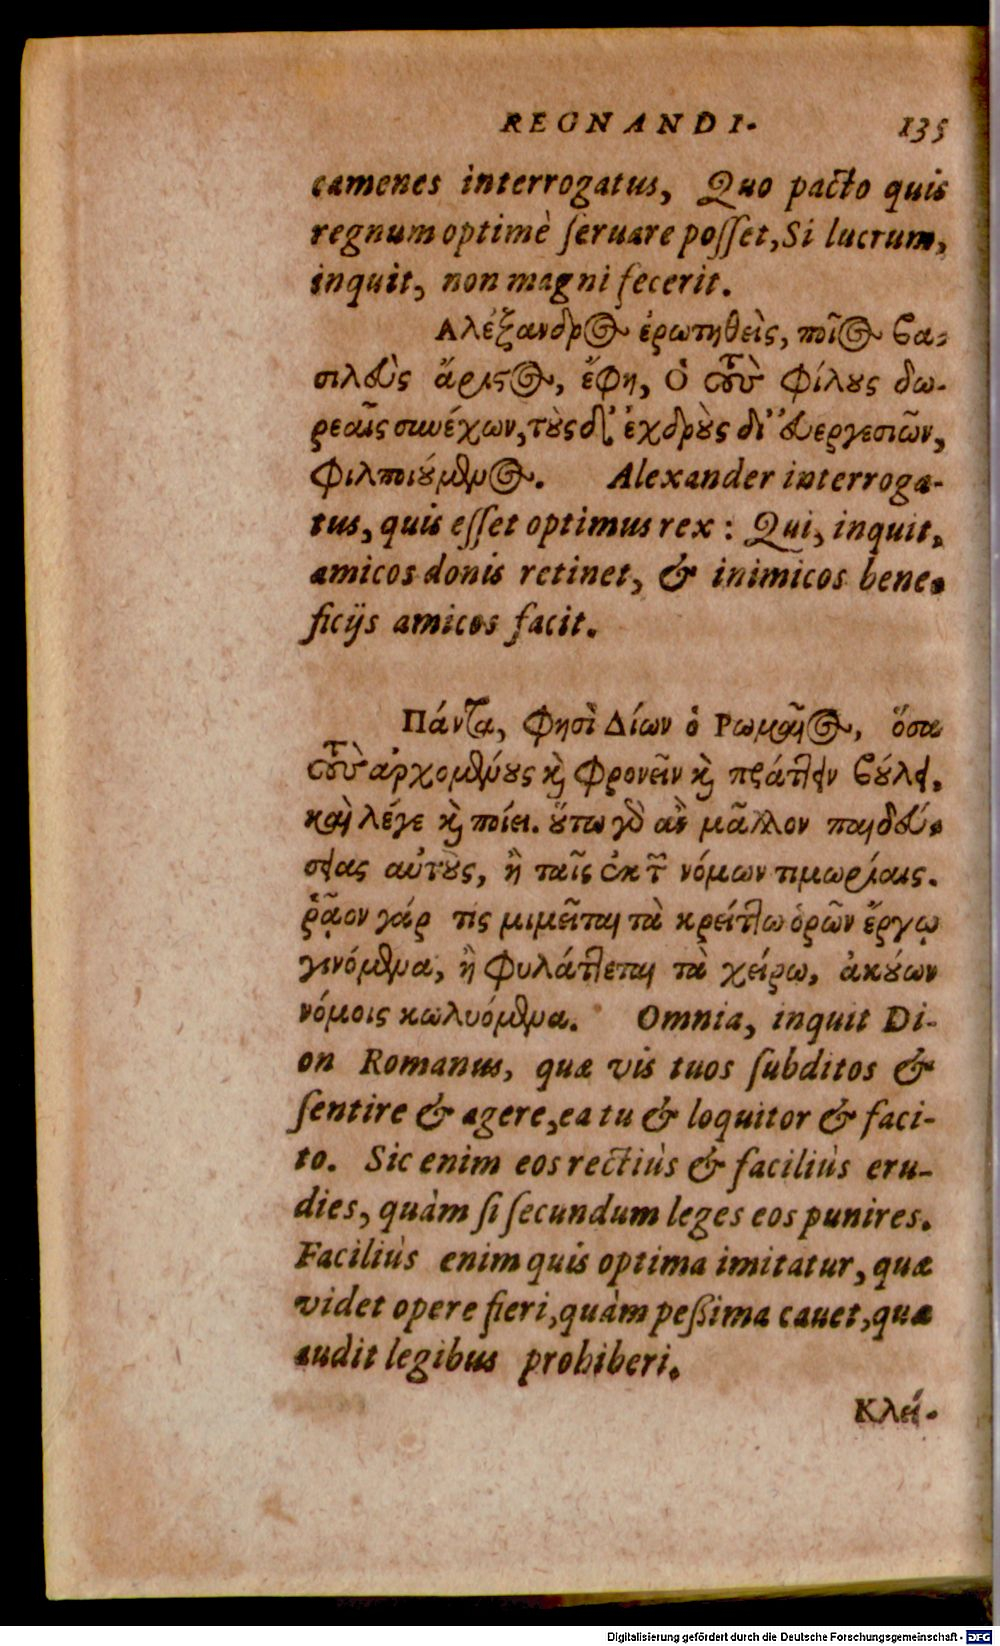 REGNANDI. 135
camenes interrogatus, Quo pacto quis
regnum optimè ſeruare poſſet, Si lucrum,
inquit, non magni fecerit.
Αλέξανδρος ἐρωτηθεὶς, ποῖος βα-
σιλεὺς ἄριστος, ἔφη, Ὁ τοὺς φίλους δω-
ρεαῖς συνέχων, τοὺς δ᾽ ἐχθροὺς δι᾽ εὐεργεσιῶν,
φιλποιούμενος. Alexander interroga-
tus, quis eſſet optimus rex : Qui, inquit,
amicos donis retinet, & inimicos bene-
ficijs amicos facit.
Πάντα, φησὶ Δίων ὁ Ρωμαῖος, ὅσα
τοὺς ἀρχομένους καὶ φρονεῖν καὶ πράττειν βούλει,
καὶ λέγε καὶ ποίει. οὕτω γὸ ἂν μᾶλλον παιδεύ-
σειας αὐτοὺς, ἢ ταῖς ἐκ τῶν νόμων τιμωρίαις.
ῥᾷον γάρ τις μιμεῖται τὰ κρείττω ὁρῶν ἔργῳ
γινόμενα, ἢ φυλάττεται τὰ χείρω, ἀκούων
νόμοις κωλυόμενα. Omnia, inquit Di-
on Romanus, quæ vis tuos ſubditos &
ſentire & agere, ea tu & loquitor & faci-
to. Sic enim eos rectiùs & faciliùs eru-
dies, quàm ſi ſecundum leges eos punires.
Faciliùs enim quis optima imitatur, quæ
videt opere fieri, quàm peßima cauet, quæ
audit legibus prohiberi.
Κλεί-
Digitalisierung gefördert durch die Deutsche Forschungsgemeinschaft - DFG